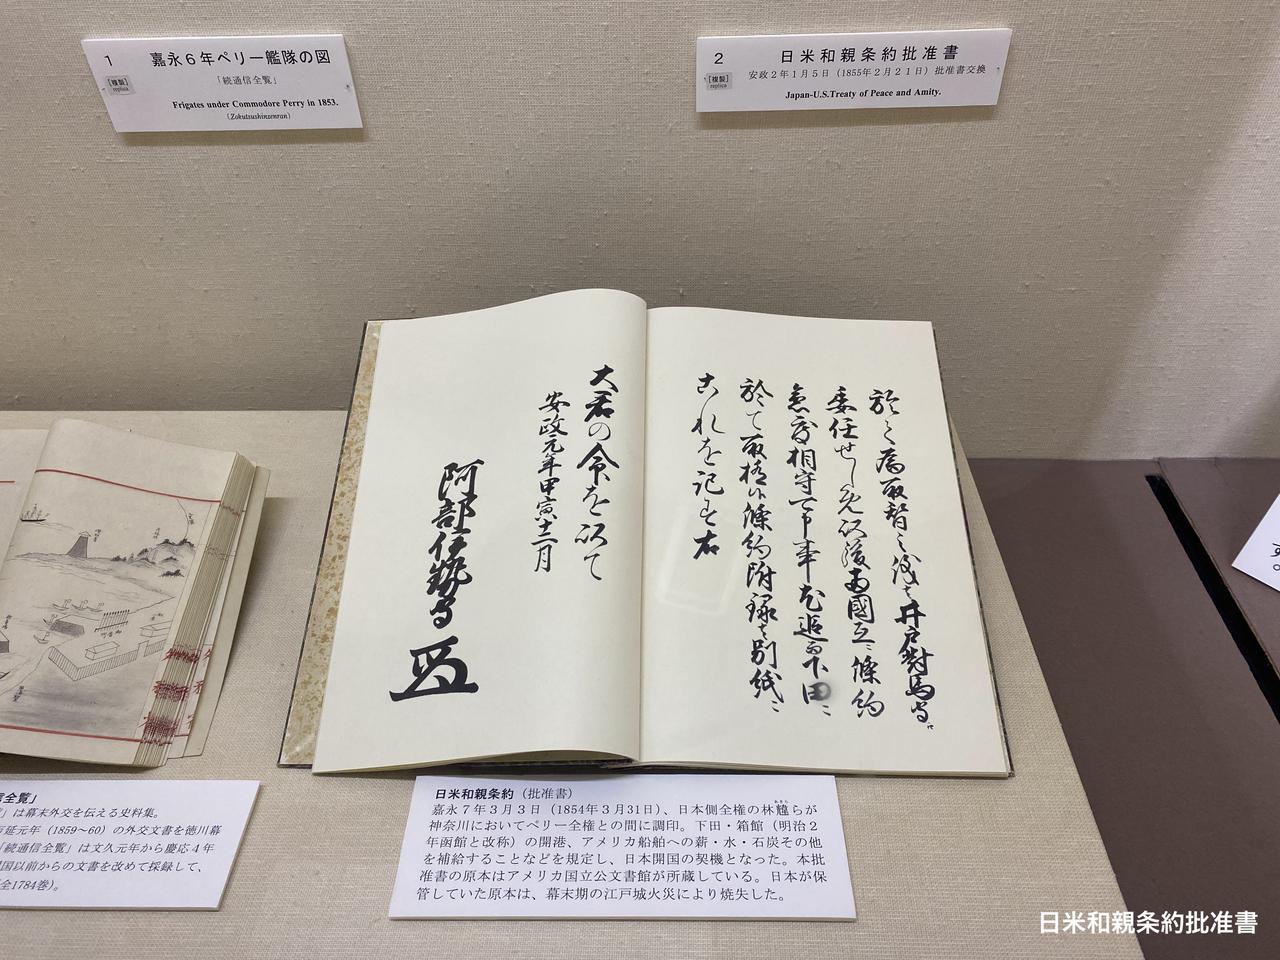 1 嘉永6年ペリー艦隊の図
[複製]
replica
「続通信全覧」
Frigates under Commodore Perry in 1853.
(Zokutsushinzenran)
2 日米和親条約批准書
[複製]
replica
安政2年1月5日（1855年2月21日）批准書交換
Japan-U.S.Treaty of Peace and Amity.
委任せし
於て取極候條約附録を別紙ニ
これを記す右
大君の命を以て
安政元年甲寅十二月
阿部伊勢守
信全覧」
」は幕末外交を伝える史料集。
延元年（1859～60）の外交文書を徳川幕
「続通信全覧」は文久元年から慶応4年
国以前からの文書を改めて採録して、
全1784巻）。
日米和親条約（批准書）
嘉永7年3月3日（1854年3月31日）、日本側全権の林韑らが
神奈川においてペリー全権との間に調印。下田・箱館（明治2
年函館と改称）の開港、アメリカ船舶への薪・水・石炭その他
を補給することなどを規定し、日本開国の契機となった。本批
准書の原本はアメリカ国立公文書館が所蔵している。日本が保
管していた原本は、幕末期の江戸城火災により焼失した。
日米和親条約批准書